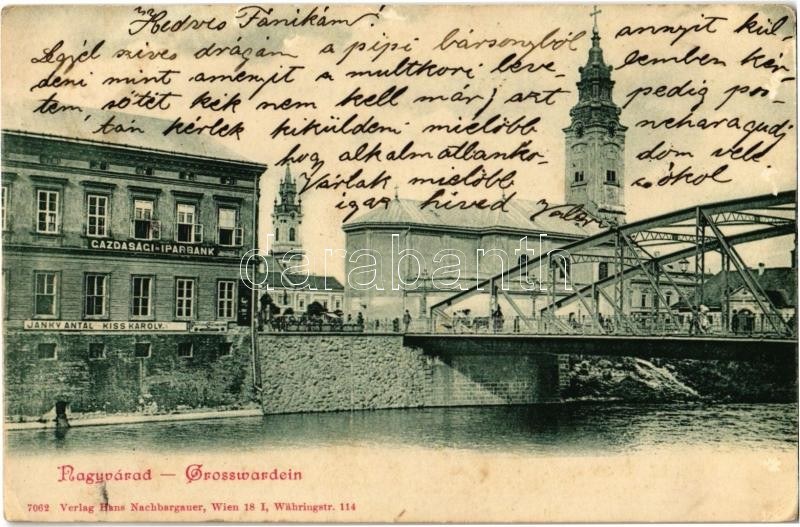 Kedves Fánikám!
Legyél szives drágám a pipi bársonyból annyit kül-
deni mint amenyit a multkori leve- lemben kér-
tem, sötét kék nem kell már, azt pedig pos-
tán kérlek kiküldeni mielőbb neharagudj
hog alkalmatlanko- dom vele
Várlak mielőbb csókol
igaz hived
GAZDASÁGI-IPARBANK
JANKY ANTAL KISS KÁROLY.
darabanth
Nagyvárad — Grosswardein
7062 Verlag Hans Nachbargauer, Wien 18 I, Währingstr. 114